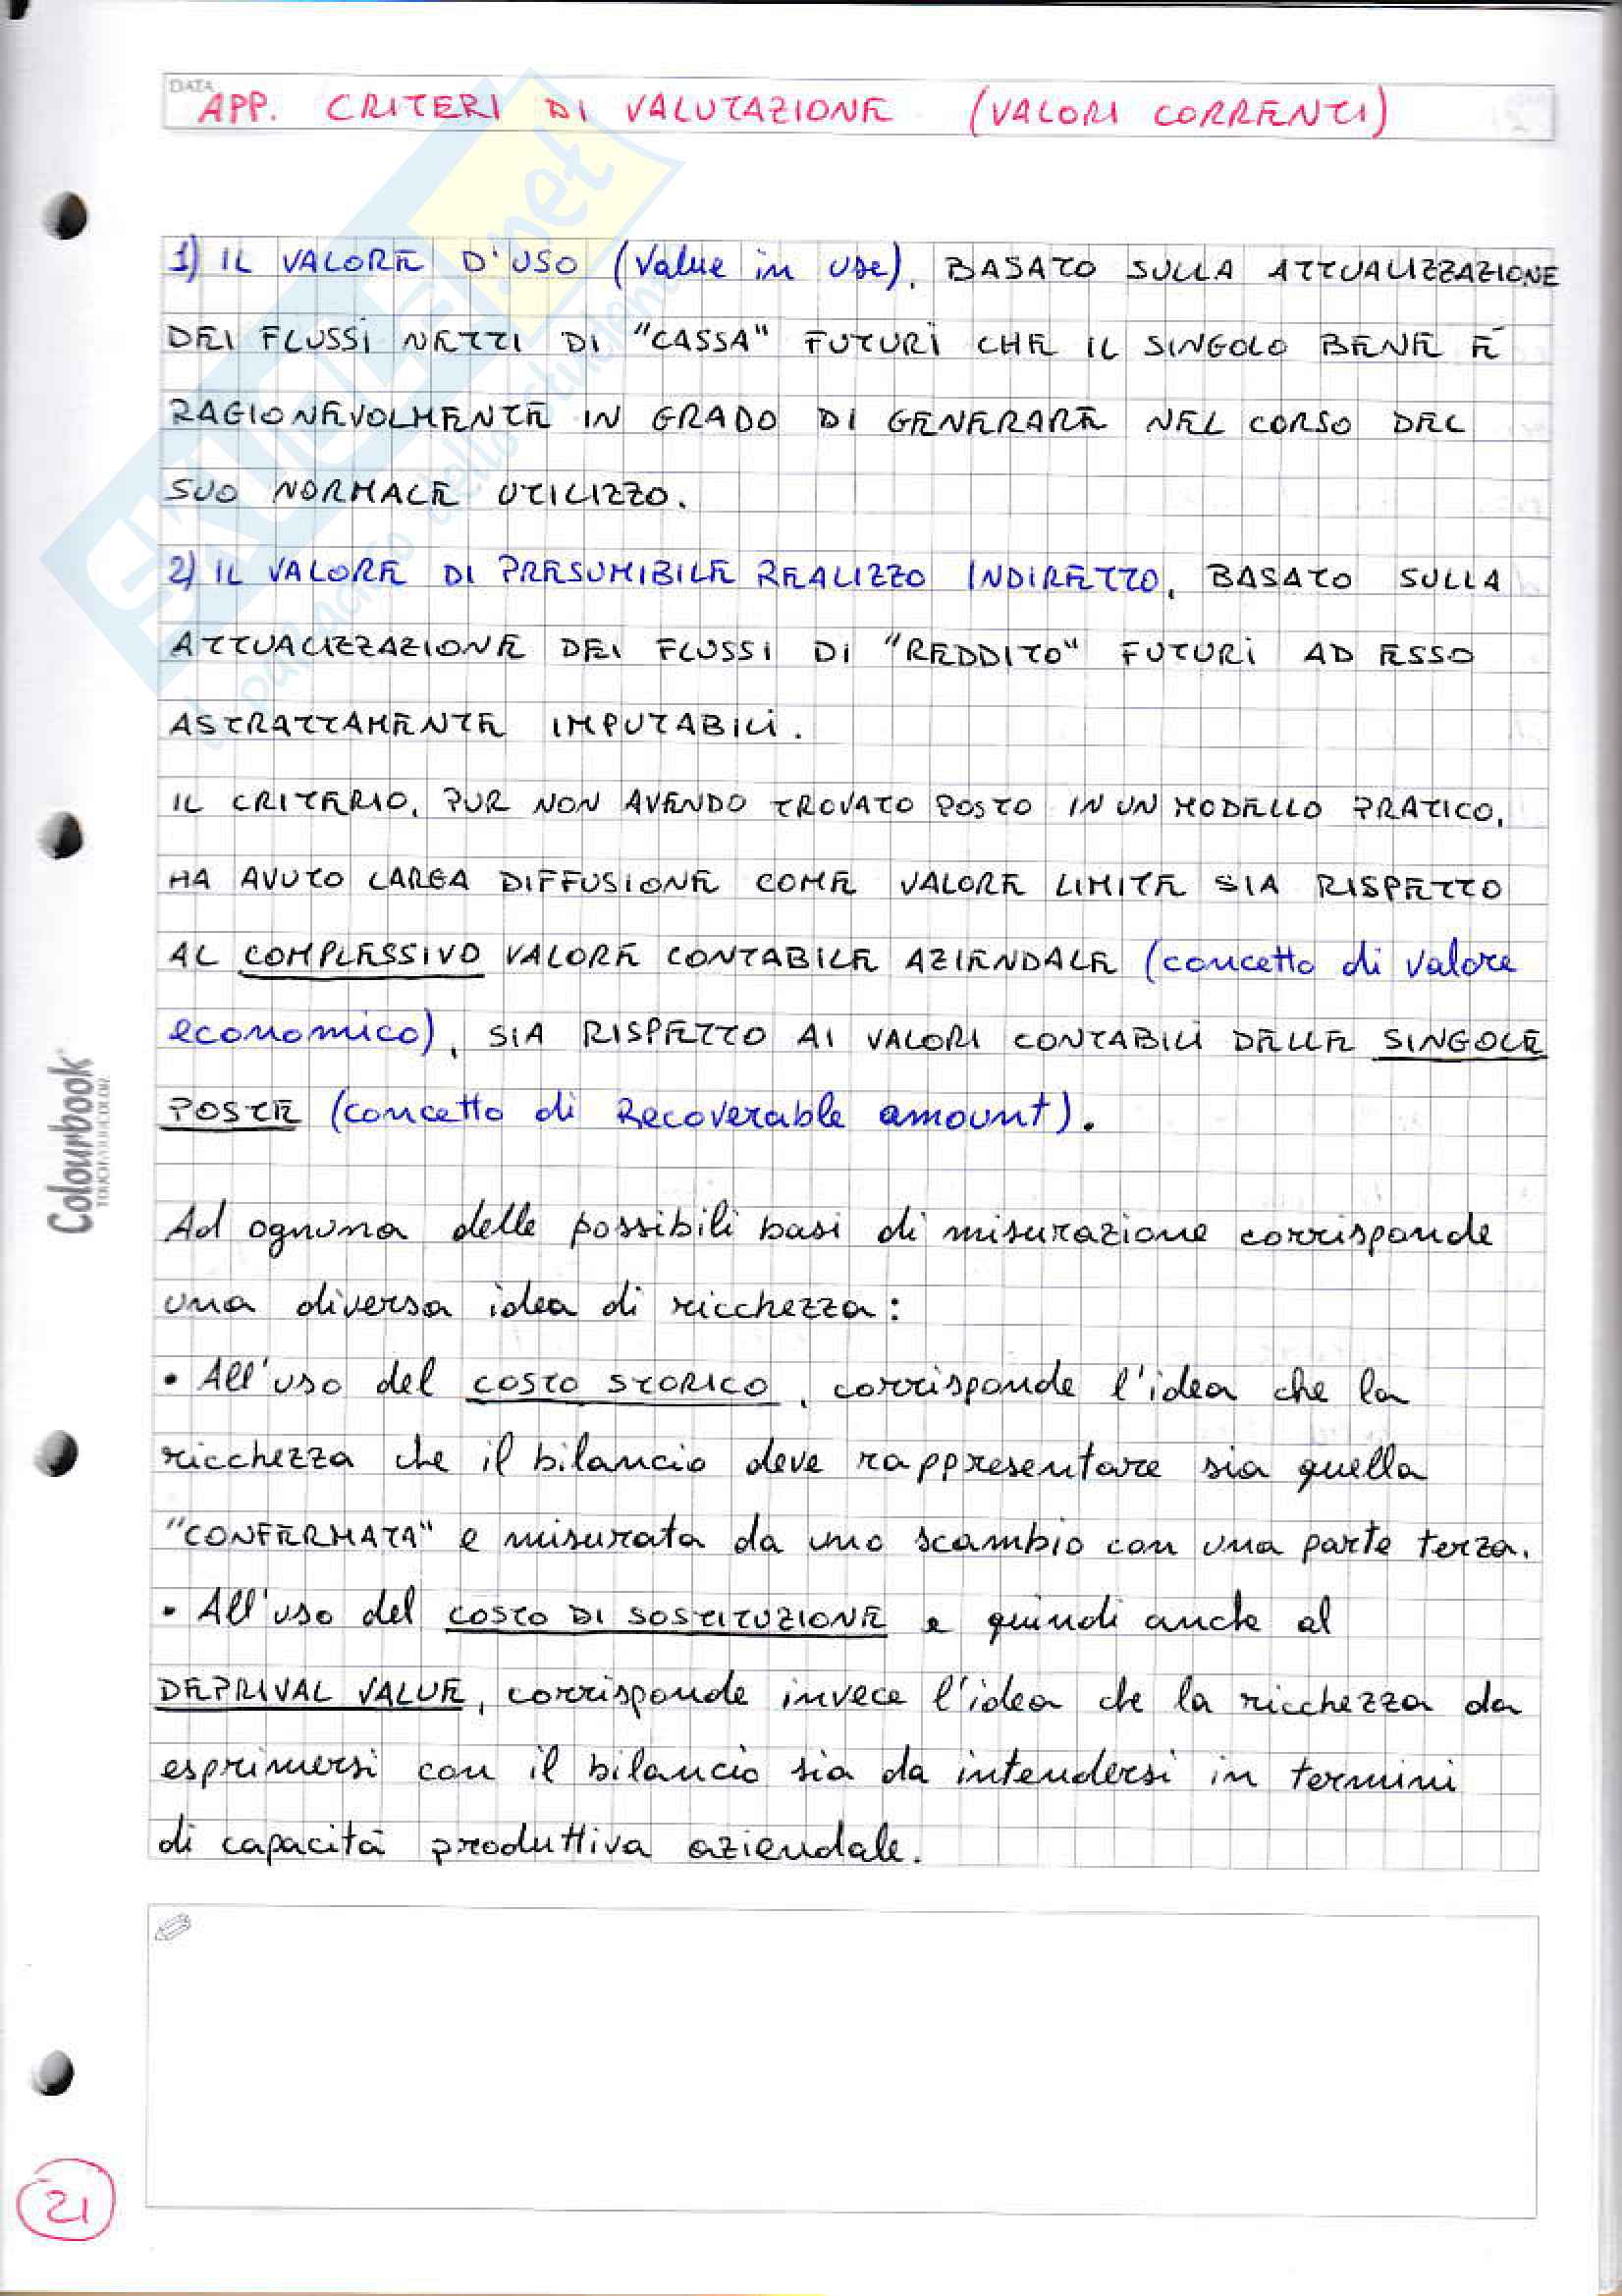 DATA
APP. CRITERI DI VALUTAZIONE (VALORI CORRENTI)
1) IL VALORE D'USO (Value in use), BASATO SULLA ATTUALIZZAZIONE
DEI FLUSSI NETTI DI "CASSA" FUTURI CHE IL SINGOLO BENE È
RAGIONEVOLMENTE IN GRADO DI GENERARE NEL CORSO DEL
SUO NORMALE UTILIZZO.
2) IL VALORE DI PRESUMIBILE REALIZZO INDIRETTO, BASATO SULLA
ATTUALIZZAZIONE DEI FLUSSI DI "REDDITO" FUTURI AD ESSO
ASTRATTAMENTE IMPUTABILI.
IL CRITERIO, PUR NON AVENDO TROVATO POSTO IN UN MODELLO PRATICO,
HA AVUTO LARGA DIFFUSIONE COME VALORE LIMITE SIA RISPETTO
AL COMPLESSIVO VALORE CONTABILE AZIENDALE (concetto di valore
economico), SIA RISPETTO AI VALORI CONTABILI DELLE SINGOLE
POSTE (concetto di Recoverable amount).
Ad ognuna delle possibili basi di misurazione corrisponde
una diversa idea di ricchezza:
• All'uso del COSTO STORICO, corrisponde l'idea che la
ricchezza che il bilancio deve rappresentare sia quella
"CONFERMATA" e misurata da uno scambio con una parte terza.
• All'uso del COSTO DI SOSTITUZIONE e quindi anche al
DEPRIVAL VALUE, corrisponde invece l'idea che la ricchezza da
esprimersi con il bilancio sia da intendersi in termini
di capacità produttiva aziendale.
Colourbook
21
SKUOLA.net